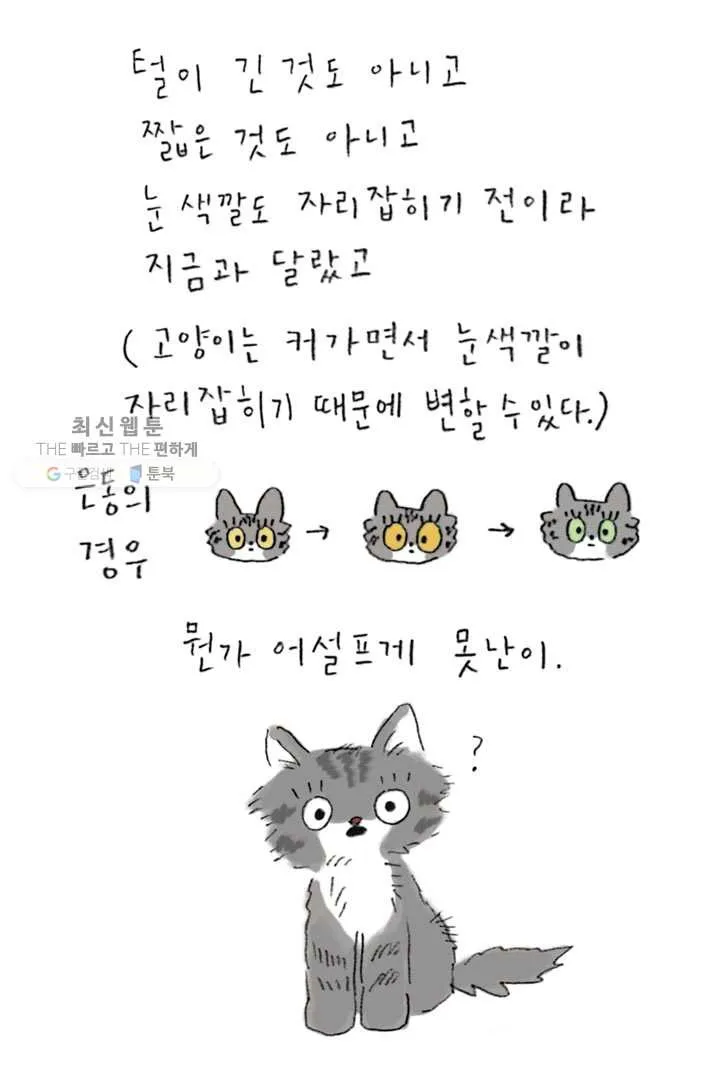 털이 긴 것도 아니고
짧은 것도 아니고
눈 색깔도 자리잡히기 전이라
지금과 달랐고
(고양이는 커가면서 눈색깔이
자리잡히기 때문에 변할 수 있다.)
최신웹툰
THE 빠르고 THE 편하게
구글검색 툰북
은동의
경우
→ →
뭔가 어설프게 못난이.
?